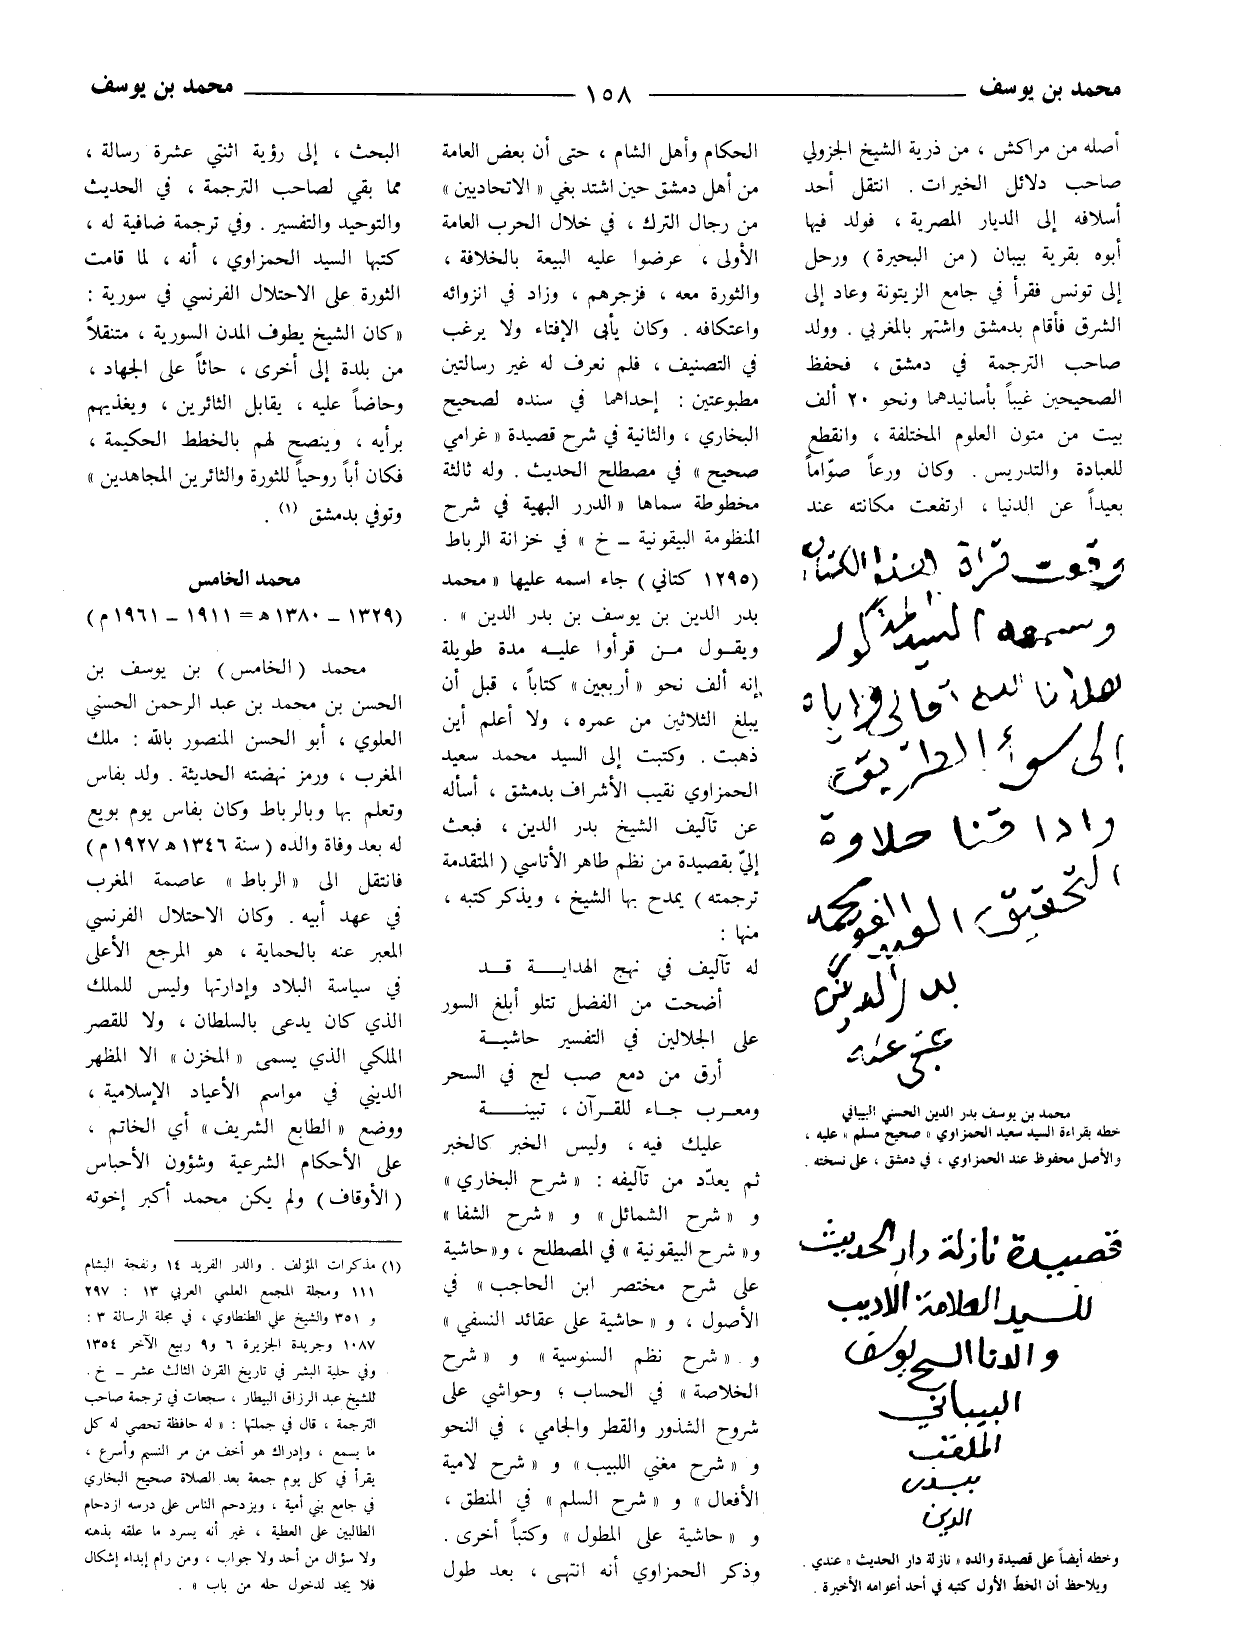 محمد بن يوسف ١٥٨ محمد بن يوسف
أصله من مراكش ، من ذرية الشيخ الجزولي
صاحب دلائل الخيرات . انتقل أحد
أسلافه إلى الديار المصرية ، فولد فيها
أبوه بقرية بيبان (من البحيرة) ورحل
إلى تونس فقرأ في جامع الزيتونة وعاد إلى
الشرق فأقام بدمشق واشتهر بالمغربي . وولد
صاحب الترجمة في دمشق ، فحفظ
الصحيحين غيباً بأسانيدهما ونحو ٢٠ ألف
بيت من متون العلوم المختلفة ، وانقطع
للعبادة والتدريس . وكان ورعاً صوّاماً
بعيداً عن الدنيا ، ارتفعت مكانته عند
وقعت قراة هذا الكتاب
وسمعه السيد المذكور
هدانا الله تعالى واياه
إلى سوأ الطريق
واذاقنا حلاوة
التحقيق الفقير محمد
بدر الدين
عفي عنه
محمد بن يوسف بدر الدين الحسني البيباني
خطه بقراءة السيد سعيد الحمزاوي « صحيح مسلم » عليه ،
والأصل محفوظ عند الحمزاوي ، في دمشق ، على نسخته .
قصيدة نازلة دار الحديث
للسيد العلامة الاديب
والدنا الشيخ يوسف
البيباني
الملقب
ببدر
الدين
وخطه أيضاً على قصيدة والده « نازلة دار الحديث » عندي .
ويلاحظ أن الخطّ الأول كتبه في أحد أعوامه الأخيرة .
الحكام وأهل الشام ، حتى أن بعض العامة
من أهل دمشق حين اشتد بغي « الاتحاديين »
من رجال الترك ، في خلال الحرب العامة
الأولى ، عرضوا عليه البيعة بالخلافة ،
والثورة معه ، فزجرهم ، وزاد في انزوائه
واعتكافه . وكان يأبى الإفتاء ولا يرغب
في التصنيف ، فلم نعرف له غير رسالتين
مطبوعتين : إحداهما في سنده لصحيح
البخاري ، والثانية في شرح قصيدة « غرامي
صحيح » في مصطلح الحديث . وله ثالثة
مخطوطة سماها « الدرر البهية في شرح
المنظومة البيقونية ـ خ » في خزانة الرباط
(١٢٩٥ كتاني) جاء اسمه عليها « محمد
بدر الدين بن يوسف بن بدر الدين » .
ويقول من قرأوا عليه مدة طويلة
إنه ألف نحو « أربعين » كتاباً ، قبل أن
يبلغ الثلاثين من عمره ، ولا أعلم أين
ذهبت . وكتبت إلى السيد محمد سعيد
الحمزاوي نقيب الأشراف بدمشق ، أسأله
عن تآليف الشيخ بدر الدين ، فبعث
إليّ بقصيدة من نظم طاهر الأتاسي (المتقدمة
ترجمته) يمدح بها الشيخ ، ويذكر كتبه ،
منها :
له تآليف في نهج الهداية قد
أضحت من الفضل تتلو أبلغ السور
على الجلالين في التفسير حاشية
أرق من دمع صب لج في السحر
ومعرب جاء للقرآن ، تبينة
عليك فيه ، وليس الخبر كالخبر
ثم يعدّد من تآليفه : « شرح البخاري »
و « شرح الشمائل » و « شرح الشفا »
و« شرح البيقونية » في المصطلح ، و«حاشية
على شرح مختصر ابن الحاجب » في
الأصول ، و « حاشية على عقائد النسفي »
و « شرح نظم السنوسية » و « شرح
الخلاصة » في الحساب ؛ وحواشي على
شروح الشذور والقطر والجامي ، في النحو
و « شرح مغني اللبيب » و « شرح لامية
الأفعال » و « شرح السلم » في المنطق ،
و « حاشية على المطول » وكتباً أخرى .
وذكر الحمزاوي أنه انتهى ، بعد طول
البحث ، إلى رؤية اثنتي عشرة رسالة ،
مما بقي لصاحب الترجمة ، في الحديث
والتوحيد والتفسير . وفي ترجمة ضافية له ،
كتبها السيد الحمزاوي ، أنه ، لما قامت
الثورة على الاحتلال الفرنسي في سورية :
«كان الشيخ يطوف المدن السورية ، متنقلاً
من بلدة إلى أخرى ، حاثاً على الجهاد ،
وحاضاً عليه ، يقابل الثائرين ، ويغذيهم
برأيه ، وينصح لهم بالخطط الحكيمة ،
فكان أباً روحياً للثورة والثائرين المجاهدين »
وتوفي بدمشق (١) .
محمد الخامس
(١٣٢٩ ـ ١٣٨٠ ه‍ = ١٩١١ ـ ١٩٦١ م)
محمد (الخامس) بن يوسف بن
الحسن بن محمد بن عبد الرحمن الحسني
العلوي ، أبو الحسن المنصور بالله : ملك
المغرب ، ورمز نهضته الحديثة . ولد بفاس
وتعلم بها وبالرباط وكان بفاس يوم بويع
له بعد وفاة والده (سنة ١٣٤٦ ه‍ ١٩٢٧ م)
فانتقل الى « الرباط » عاصمة المغرب
في عهد أبيه . وكان الاحتلال الفرنسي
المعبر عنه بالحماية ، هو المرجع الأعلى
في سياسة البلاد وإدارتها وليس للملك
الذي كان يدعى بالسلطان ، ولا للقصر
الملكي الذي يسمى « المخزن » الا المظهر
الديني في مواسم الأعياد الإسلامية ،
ووضع « الطابع الشريف » أي الخاتم ،
على الأحكام الشرعية وشؤون الأحباس
(الأوقاف) ولم يكن محمد أكبر إخوته
(١) مذكرات المؤلف . والدر الفريد ١٤ ونفحة البشام
١١١ ومجلة المجمع العلمي العربي ١٣ : ٢٩٧
و ٣٥١ والشيخ علي الطنطاوي ، في مجلة الرسالة ٣ :
١٠٨٧ وجريدة الجزيرة ٦ و٩ ربيع الآخر ١٣٥٤
وفي حلية البشر في تاريخ القرن الثالث عشر ـ خ .
للشيخ عبد الرزاق البيطار ، سجعات في ترجمة صاحب
الترجمة ، قال في جملتها : « له حافظة تحصي له كل
ما يسمع ، وإدراك هو أخف من مر النسيم وأسرع ،
يقرأ في كل يوم جمعة بعد الصلاة صحيح البخاري
في جامع بني أمية ، ويزدحم الناس على درسه ازدحام
الطالبين على العطية ، غير أنه يسرد ما علقه بذهنه
ولا سؤال من أحد ولا جواب ، ومن رام إبداء إشكال
فلا يجد لدخول حله من باب » .